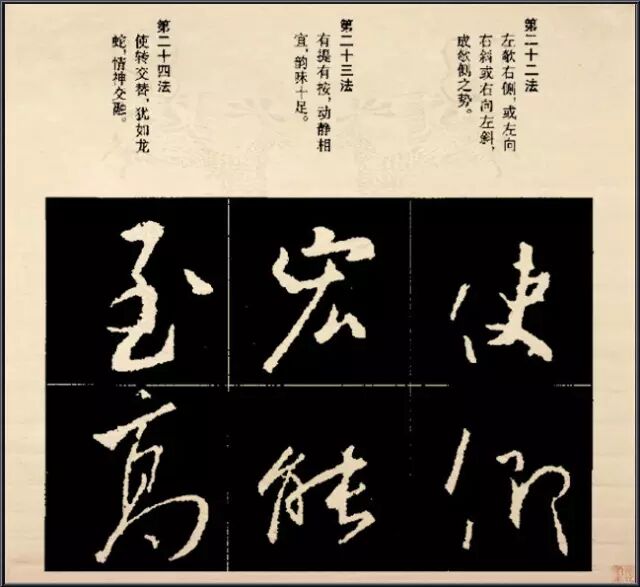 第二十二法
左欹右侧，或左向
右斜或右向左斜，
成欹侧之势。
第二十三法
有提有按，动静相
宜，韵味十足。
第二十四法
使转交替，犹如龙
蛇，情神交融。
使仰
宏能
至高